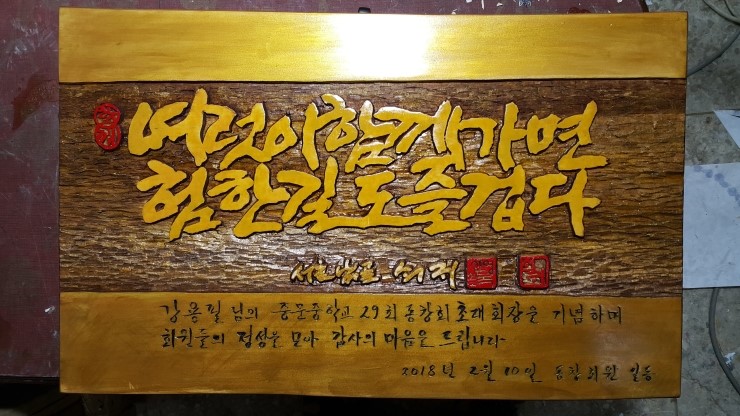 여럿이 함께 가면
험한 길도 즐겁다
강용필님의 중문중학교 29회 동창회 초대 회장을 기념하며
회원들의 정성을 모아 감사의 마음을 드립니다
2018년 2월 10일 동창회원 일동